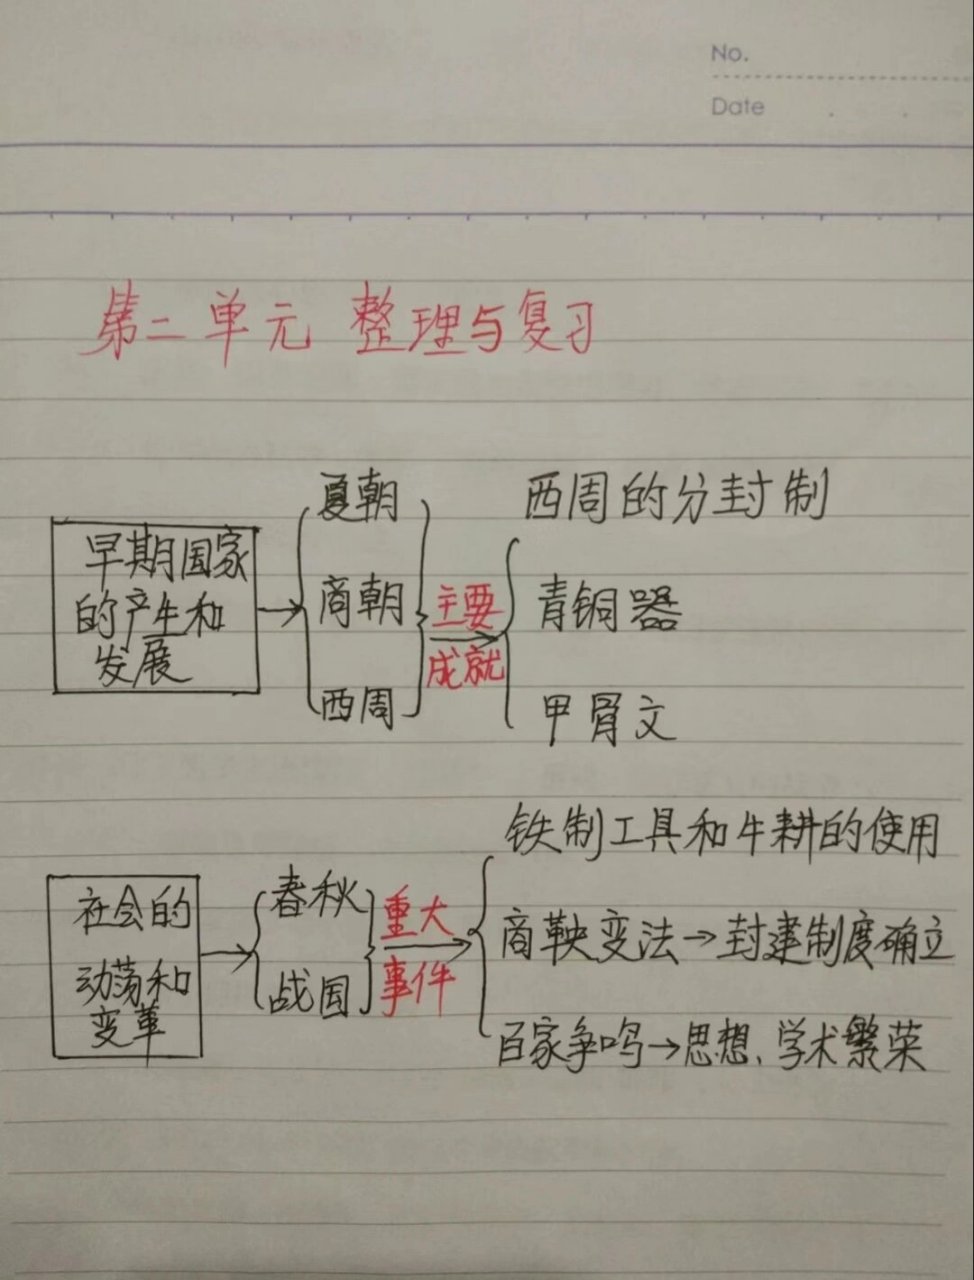 No.
Date
第二单元 整理与复习
早期国家
的产生和
发展
夏朝
商朝
西周
主要
成就
西周的分封制
青铜器
甲骨文
社会的
动荡和
变革
春秋
战国
重大
事件
铁制工具和牛耕的使用
商鞅变法→封建制度确立
百家争鸣→思想、学术繁荣